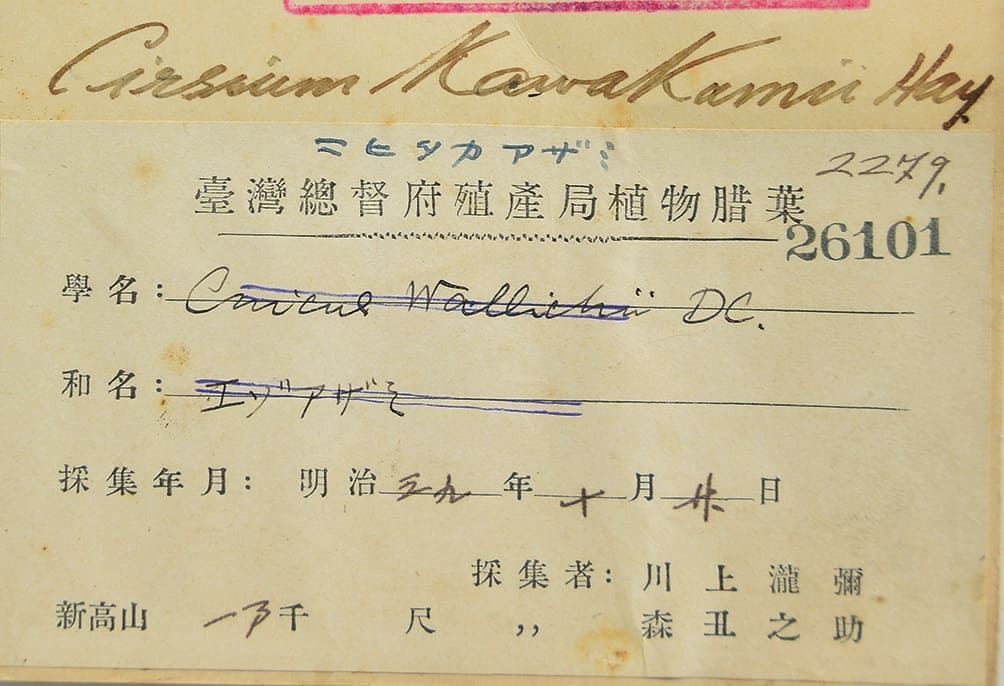 Cirsium Kawakamii Hay.
ニヒタカアザミ
2279.
臺灣總督府殖產局植物腊葉
26101
學名: Cnicus Wallichii DC.
和名: エゾアザミ
採集年月: 明治三九年十月廿日
採集者: 川上瀧彌
新高山 一万千 尺 ,, 森丑之助